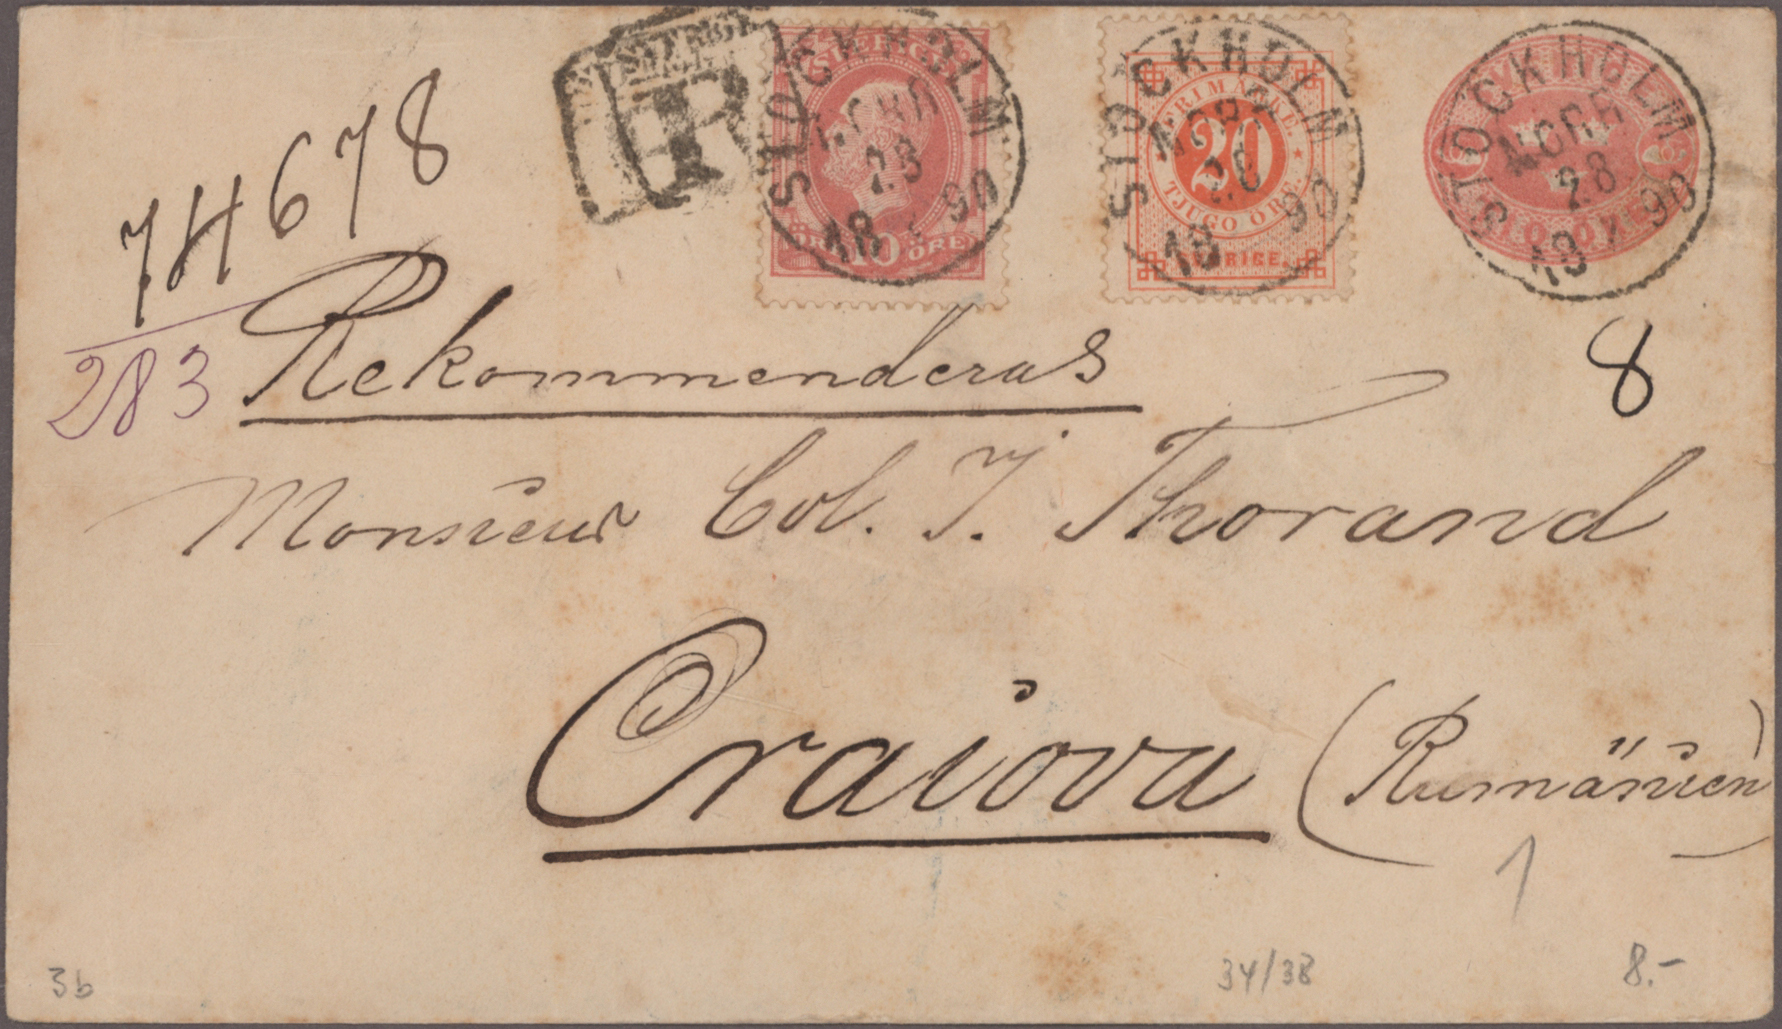 R
SVERIGE
10 ÖRE
FRIMÄRKE
20
TJUGO ÖRE
SVERIGE
STOCKHOLM
NORR
28
18 90
STOCKHOLM
NORR
28
18 90
STOCKHOLM
NORR
28
18 90
74678
283
8
Rekommenderas
Monsieur Col. J. Thorand
Craiova (Rumänien)
1
3b
34/38
8.-